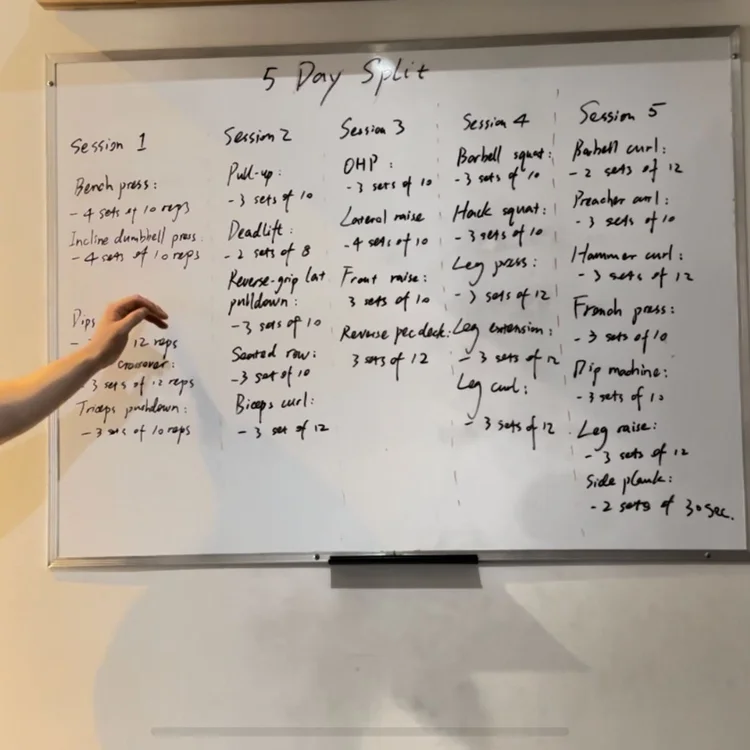 5 Day Split
Session 1
Bench press:
- 4 sets of 10 reps
Incline dumbbell press:
- 4 sets of 10 reps
Dips
- 12 reps
crossover:
3 sets of 12 reps
Triceps pushdown:
- 3 sets of 10 reps
Session 2
Pull-up:
- 3 sets of 10
Deadlift:
- 2 sets of 8
Reverse-grip lat
pulldown:
- 3 sets of 10
Seated row:
- 3 set of 10
Biceps curl:
- 3 set of 12
Session 3
OHP:
- 3 sets of 10
Lateral raise
- 4 sets of 10
Front raise:
3 sets of 10
Reverse pec deck:
3 sets of 12
Session 4
Barbell squat:
- 3 sets of 10
Hack squat:
- 3 sets of 10
Leg press:
- 3 sets of 12
Leg extension:
- 3 sets of 12
Leg curl:
- 3 sets of 12
Session 5
Barbell curl:
- 2 sets of 12
Preacher curl:
- 3 sets of 10
Hammer curl:
- 3 sets of 12
French press:
- 3 sets of 10
Dip machine:
- 3 sets of 10
Leg raise:
- 3 sets of 12
Side plank:
- 2 sets of 30 sec.